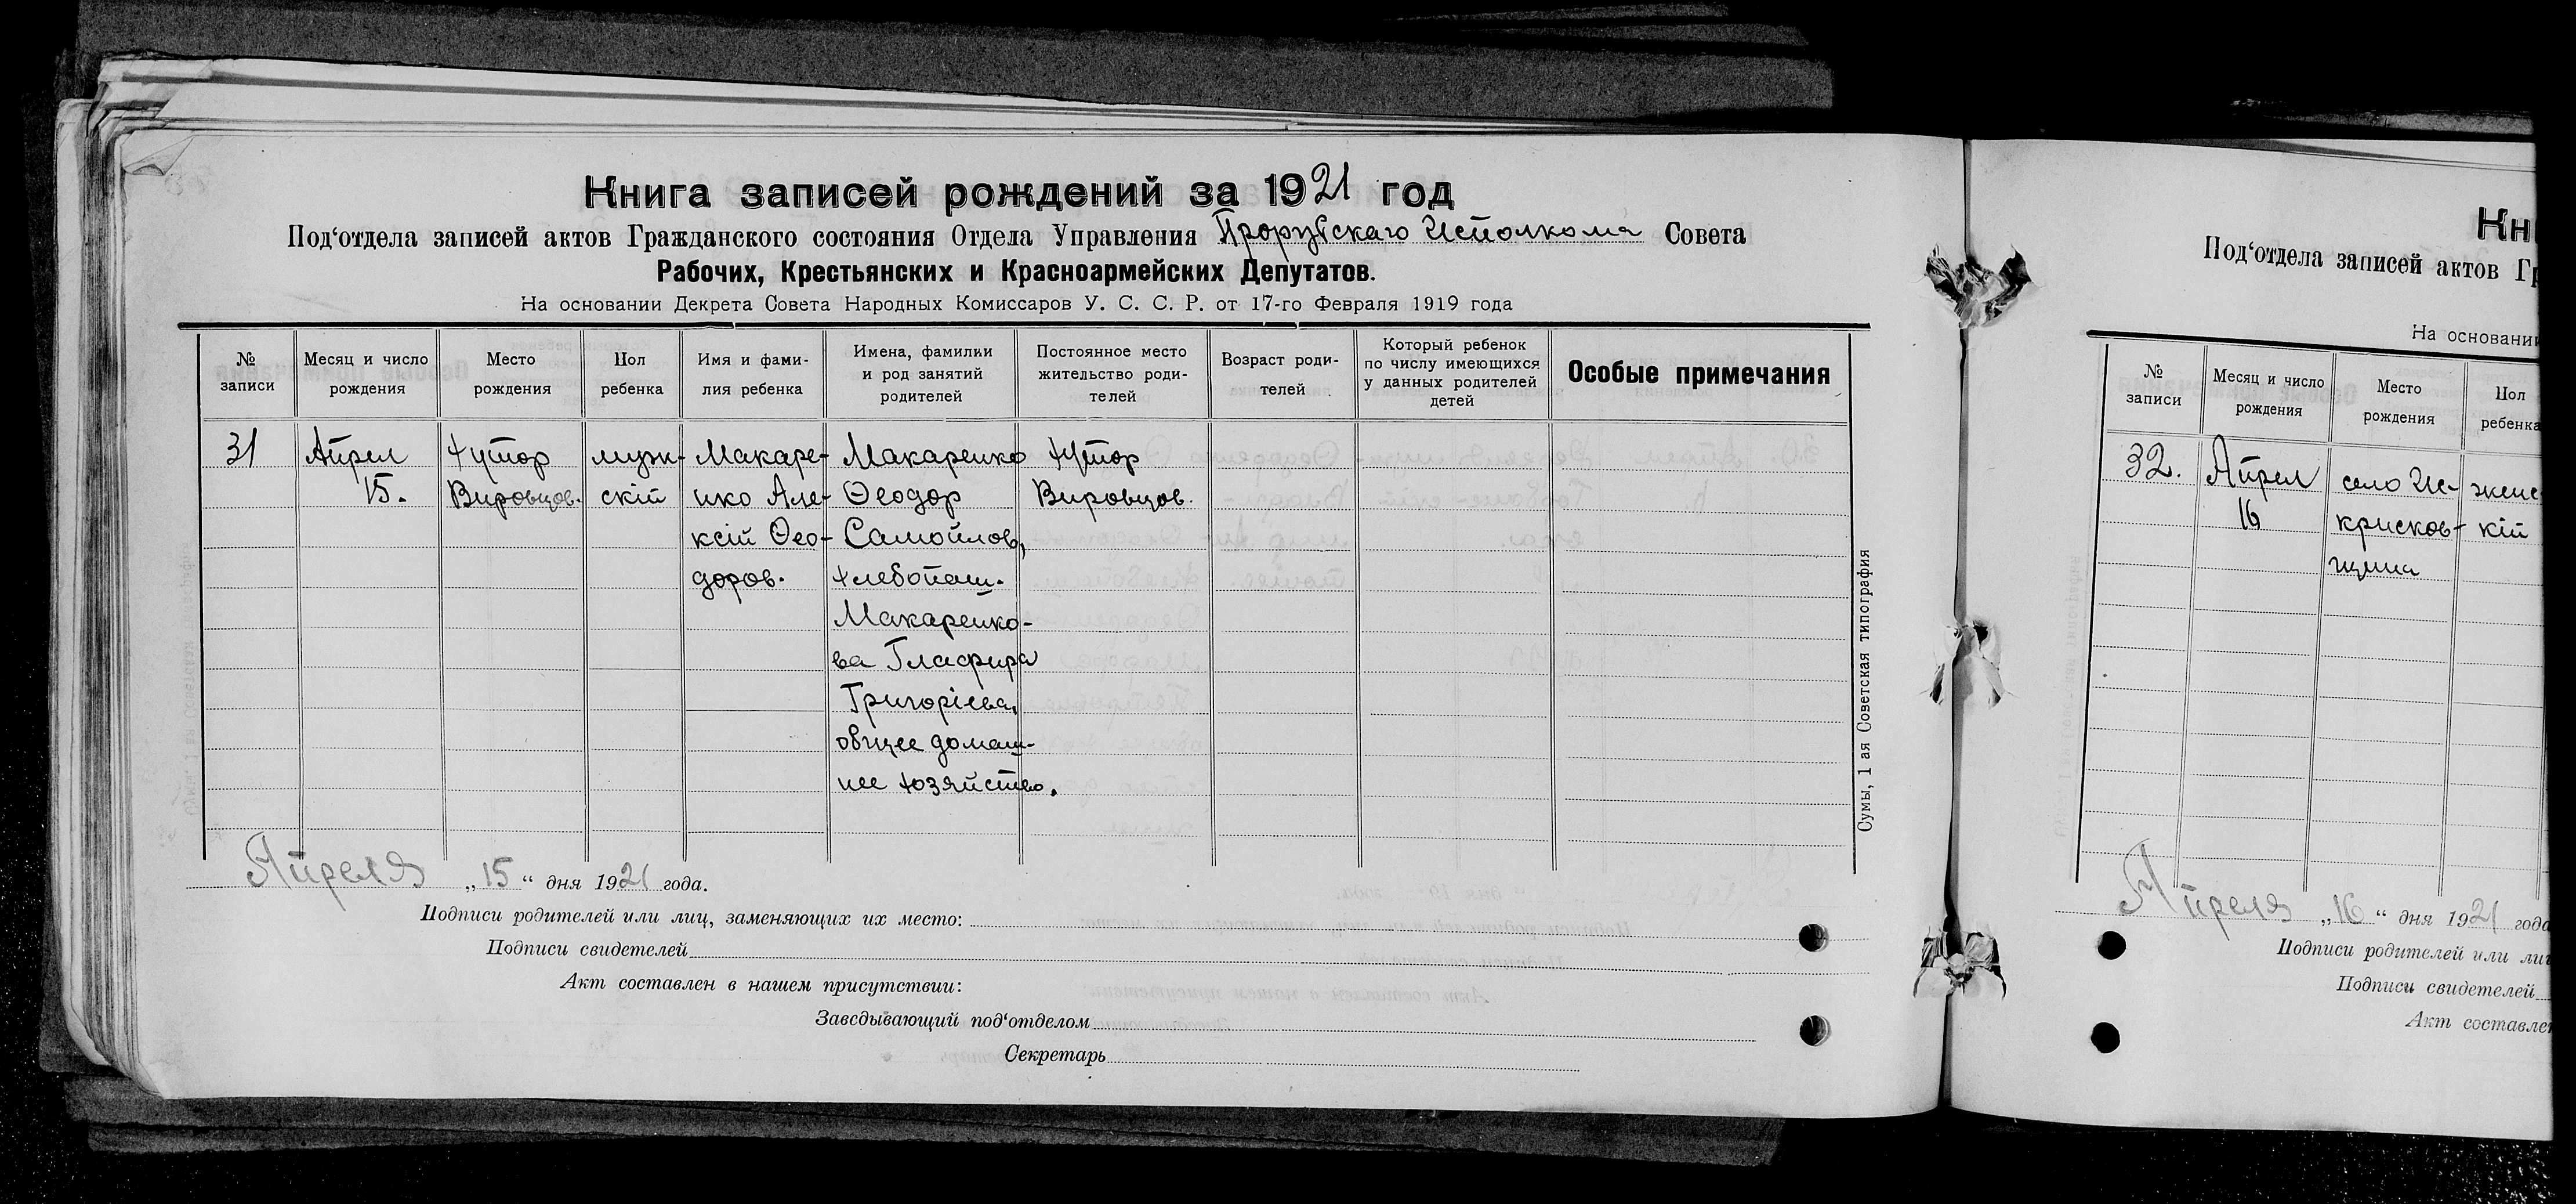 Книга записей рождений за 1921 год
Под‘отдела записей актов Гражданского состояния Отдела Управления Прорубскаго Исполкома Совета
Рабочих, Крестьянских и Красноармейских Депутатов.
На основании Декрета Совета Народных Комиссаров У. С. С. Р. от 17-го Февраля 1919 года
№ записи
Месяц и число рождения
Место рождения
Пол ребенка
Имя и фами-
лия ребенка
Имена, фамилии
и род занятий
родителей
Постоянное место
жительство роди-
телей
Возраст роди-
телей
Который ребенок
по числу имеющихся
у данных родителей
детей
Особые примечания
31
Апрел
15.
Хутор
Вировцов.
муж-
скій
Макаре-
нко Але-
ксій Ѳео-
доров.
Макаренко
Ѳеодор
Самойлов,
хлебопаш.
Макаренко-
ва Гласфира
Григоріева,
общее домаш-
нее хозяйство.
Хутор
Вировцов.
Сумы, 1 ая Советская типография
Апреля „15“ дня 1921 года.
Подписи родителей или лиц, заменяющих их место:
Подписи свидетелей
Акт составлен в нашем присутствии:
Заведывающий под‘отделом
Секретарь
Кн
Под‘отдела записей актов Гр
На основании
№
записи
Месяц и число
рождения
Место
рождения
Пол
ребенка
32.
Апрел
16
село Ис-
крисков-
щина
женс
кій
Апреля „16“ дня 1921 года
Подписи родителей или лиц
Подписи свидетелей
Акт составлен